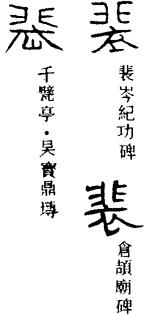 裴
裴岑紀功碑
裴
倉頡廟碑
裴
千甓亭·吳寶鼎塼